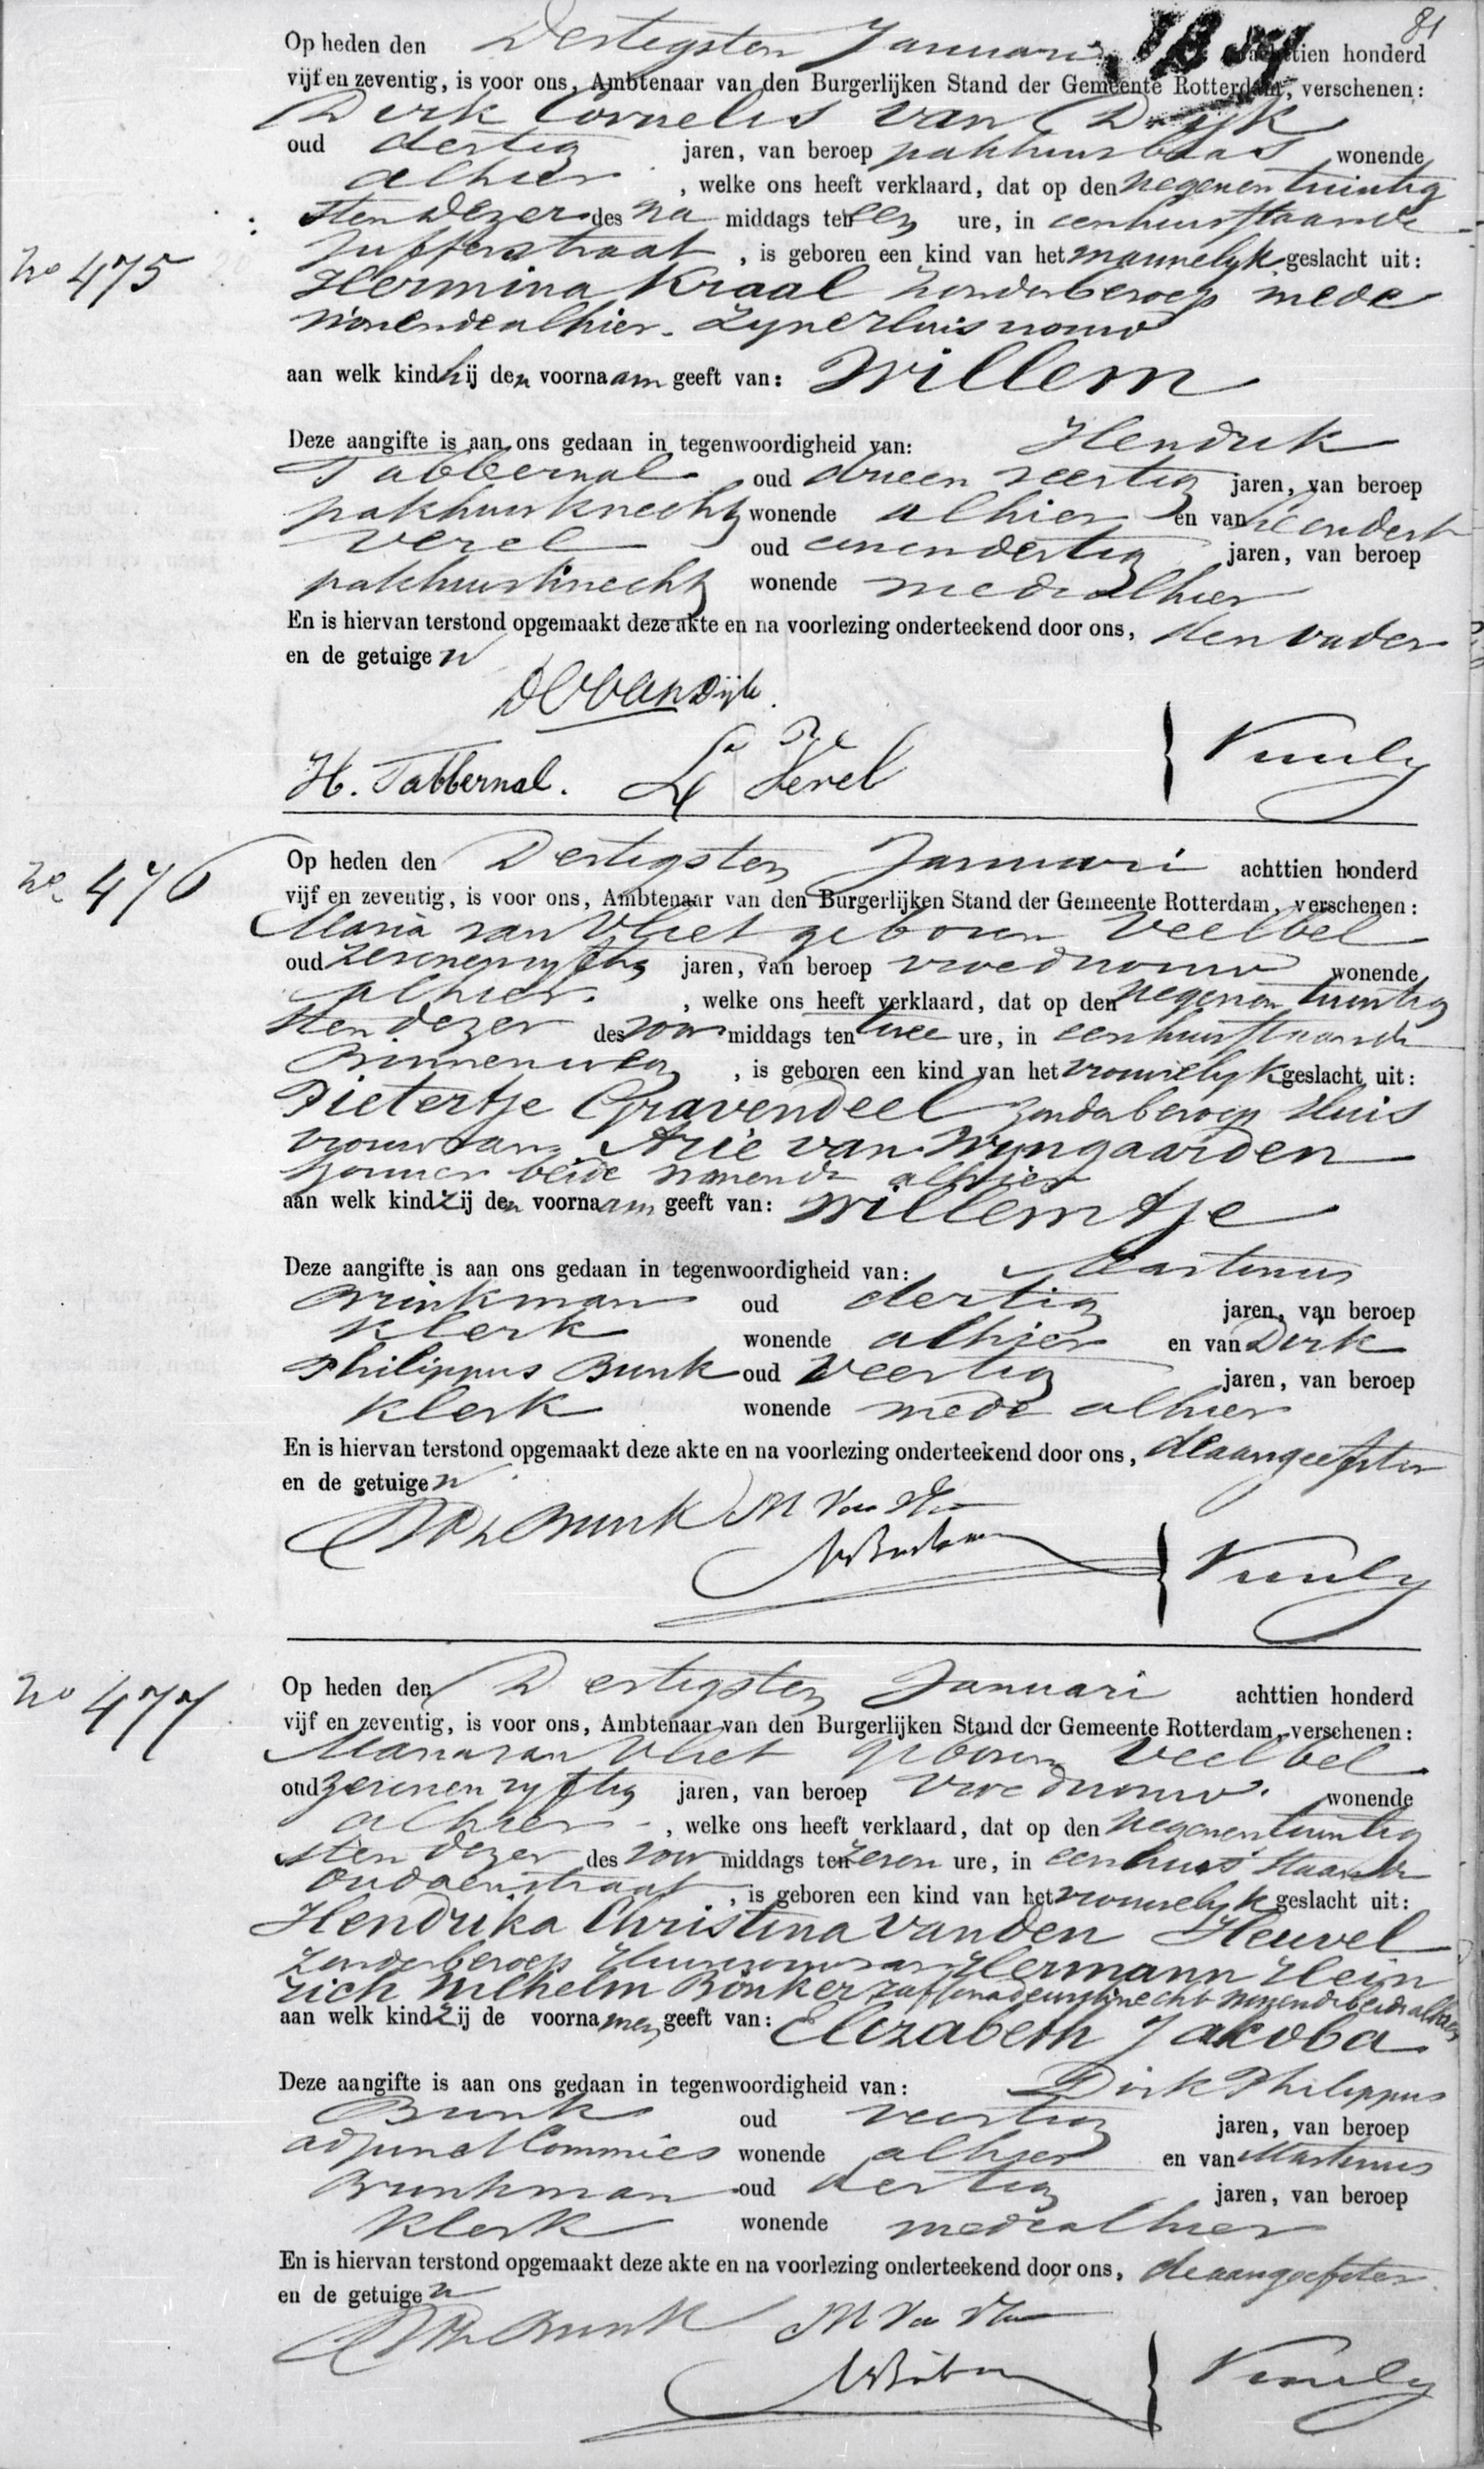 81
Op heden den Dertigsten Januari achttien honderd
vijf en zeventig, is voor ons, Ambtenaar van den Burgerlijken Stand der Gemeente Rotterdam, verschenen:
Dirk Cornelis van Dijk
oud dertig jaren, van beroep pakhuisbaas wonende
alhier, welke ons heeft verklaard, dat op den negenentwintig
sten dezer des na middags ten een ure, in een huis staande
Jufferstraat, is geboren een kind van het mannelijk geslacht uit:
No 475
Hermina Kraal zonder beroep mede
wonende alhier. zijne Huisvrouw
aan welk kind hij den voornaam geeft van: Willem
Deze aangifte is aan ons gedaan in tegenwoordigheid van: Hendrik
Tabbernal oud drieenveertig jaren, van beroep
pakhuisknecht wonende alhier en van Leendert
Verel oud eenendertig jaren, van beroep
pakhuisknecht wonende mede alhier
En is hiervan terstond opgemaakt deze akte en na voorlezing onderteekend door ons, den vader
en de getuigen
DC van Dijk.
H. Tabbernal. Verel
No 476
Op heden den Dertigsten Januari achttien honderd
vijf en zeventig, is voor ons, Ambtenaar van den Burgerlijken Stand der Gemeente Rotterdam, verschenen:
Maria van Vliet geboren Veelbel
oud zevenenvyftig jaren, van beroep vroedvrouw wonende
alhier, welke ons heeft verklaard, dat op den negenentwintig
sten dezer des voormiddags ten twee ure, in een huis staande
Binnenweg, is geboren een kind van het vrouwelijk geslacht uit:
Pietertje Gravendeel zonder beroep Huis
vrouw van Arie van Wijngaarden
beide wonende alhier
aan welk kind zij den voornaam geeft van: Willemtje
Deze aangifte is aan ons gedaan in tegenwoordigheid van: Martinus
Brinkman oud dertig jaren, van beroep
klerk wonende alhier en van Dirk
Philippus Bunk oud veertig jaren, van beroep
klerk wonende mede alhier
En is hiervan terstond opgemaakt deze akte en na voorlezing onderteekend door ons, de aangeefster
en de getuigen
DPh Bunk M Van Vliet
No 477
Op heden den Dertigsten Januari achttien honderd
vijf en zeventig, is voor ons, Ambtenaar van den Burgerlijken Stand der Gemeente Rotterdam, verschenen:
Maria van Vliet geboren Veelbel
oud zevenenvyftig jaren, van beroep vroedvrouw. wonende
alhier, welke ons heeft verklaard, dat op den negenentwintig
sten dezer des voormiddags ten zeven ure, in een huis staande
Oudaenstraat, is geboren een kind van het vrouwelijk geslacht uit:
Hendrika Christina van den Heuvel
zonder beroep Huisvrouw van Hermann Hein
rich Wilhelm Bönker wonende beide alhier
aan welk kind zij de voornamen geeft van: Elizabeth Jakoba
Deze aangifte is aan ons gedaan in tegenwoordigheid van: Dirk Philippus
Bunk oud veertig jaren, van beroep
adjunct Commies wonende alhier en van Martinus
Brinkman oud dertig jaren, van beroep
klerk wonende mede alhier
En is hiervan terstond opgemaakt deze akte en na voorlezing onderteekend door ons, de aangeefster
en de getuigen
DPh Bunk M Van Vliet